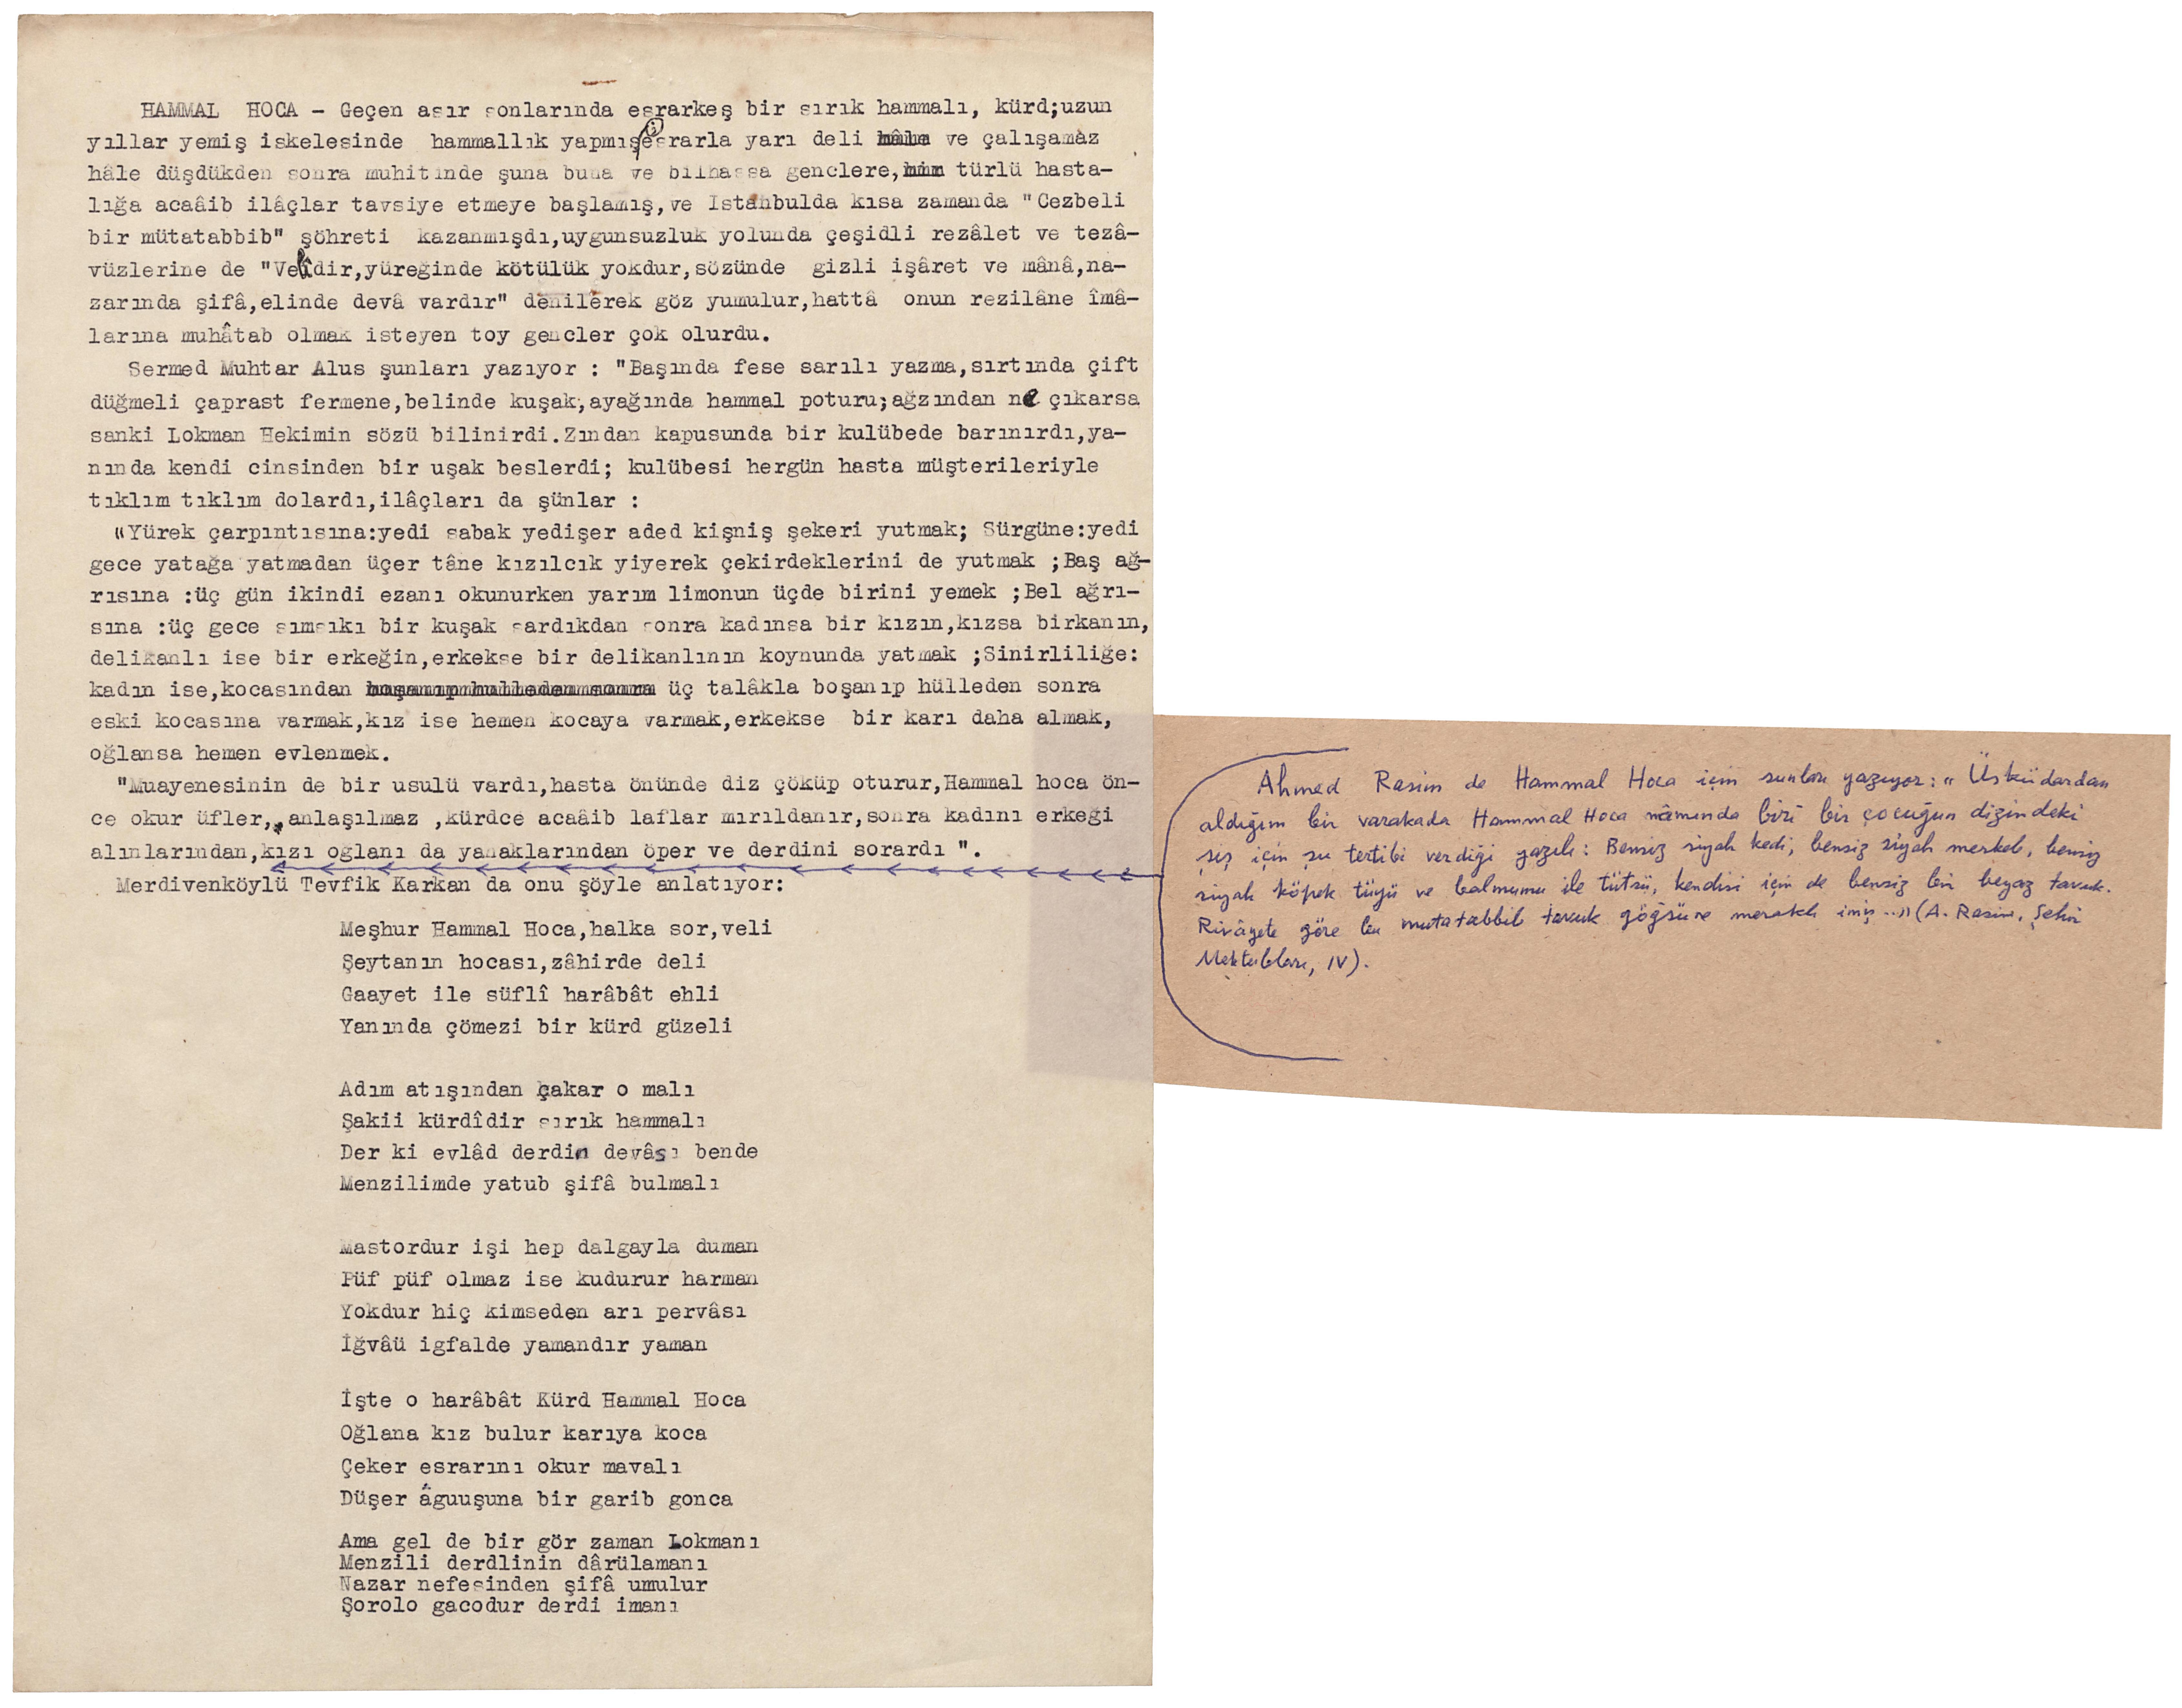 HAMMAL HOCA - Geçen asır sonlarında esrarkeş bir sırık hammalı, kürd;uzun
yıllar yemiş iskelesinde hammallık yapmış; esrarla yarı deli ve çalışamaz
hâle düşdükden sonra muhitinde şuna buna ve bilhassa genclere, türlü hasta-
lığa acaâib ilâçlar tavsiye etmeye başlamış,ve Istanbulda kısa zamanda "Cezbeli
bir mütatabbib" şöhreti kazanmışdı,uygunsuzluk yolunda çeşidli rezâlet ve tezâ-
vüzlerine de "Velîdir,yüreğinde kötülük yokdur,sözünde gizli işâret ve mânâ,na-
zarında şifâ,elinde devâ vardır" denilerek göz yumulur,hattâ onun rezilâne îmâ-
larına muhâtab olmak isteyen toy gencler çok olurdu.
Sermed Muhtar Alus şunları yazıyor : "Başında fese sarılı yazma,sırtında çift
düğmeli çaprast fermene,belinde kuşak,ayağında hammal poturu;ağzından ne çıkarsa
sanki Lokman Hekimin sözü bilinirdi.Zından kapusunda bir kulübede barınırdı,ya-
nında kendi cinsinden bir uşak beslerdi; kulübesi hergün hasta müşterileriyle
tıklım tıklım dolardı,ilâçları da şünlar :
"Yürek çarpıntısına:yedi sabak yedişer aded kişniş şekeri yutmak; Sürgüne:yedi
gece yatağa yatmadan üçer tâne kızılcık yiyerek çekirdeklerini de yutmak ;Baş ağ-
rısına :üç gün ikindi ezanı okunurken yarım limonun üçde birini yemek ;Bel ağrı-
sına :üç gece sımsıkı bir kuşak sardıkdan sonra kadınsa bir kızın,kızsa birkanın,
delikanlı ise bir erkeğin,erkekse bir delikanlının koynunda yatmak ;Sinirliliğe:
kadın ise,kocasından boşanıp hulleden sonra üç talâkla boşanıp hülleden sonra
eski kocasına varmak,kız ise hemen kocaya varmak,erkekse bir karı daha almak,
oğlansa hemen evlenmek.
"Muayenesinin de bir usulü vardı,hasta önünde diz çöküp oturur,Hammal hoca ön-
ce okur üfler, anlaşılmaz ,kürdce acaâib laflar mırıldanır,sonra kadını erkegi
alınlarından,kızı oglanı da yanaklarından öper ve derdini sorardı ".
Merdivenköylü Tevfik Karkan da onu şöyle anlatıyor:
Meşhur Hammal Hoca,halka sor,veli
Şeytanın hocası,zâhirde deli
Gaayet ile süflî harâbât ehli
Yanında çömezi bir kürd güzeli
Adım atışından çakar o malı
Şakii kürdîdir sırık hammalı
Der ki evlâd derdin devâsı bende
Menzilimde yatub şifâ bulmalı
Mastordur işi hep dalgayla duman
Püf püf olmaz ise kudurur harman
Yokdur hiç kimseden arı pervâsı
İğvâü igfalde yamandır yaman
İşte o harâbât Kürd Hammal Hoca
Oğlana kız bulur karıya koca
Çeker esrarını okur mavalı
Düşer âguuşuna bir garib gonca
Ama gel de bir gör zaman Lokmanı
Menzili derdlinin dârülamanı
Nazar nefesinden şifâ umulur
Şorolo gacodur derdi imanı
Ahmed Rasim de Hammal Hoca için şunları yazıyor: "Üsküdardan
aldığım bir varakada Hammal Hoca nâmında biri bir çocuğun dizindeki
şiş için şu tertibi verdiği yazılı: Bensiz siyah kedi, bensiz siyah merkeb, bensiz
siyah köpek tüyü ve balmumu ile tütsü, kendisi için de bensiz bir beyaz tavuk.
Rivâyete göre bu mutatabbib tavuk göğsüne meraklı imiş..." (A. Rasim, Şehir
Mektubları, IV).